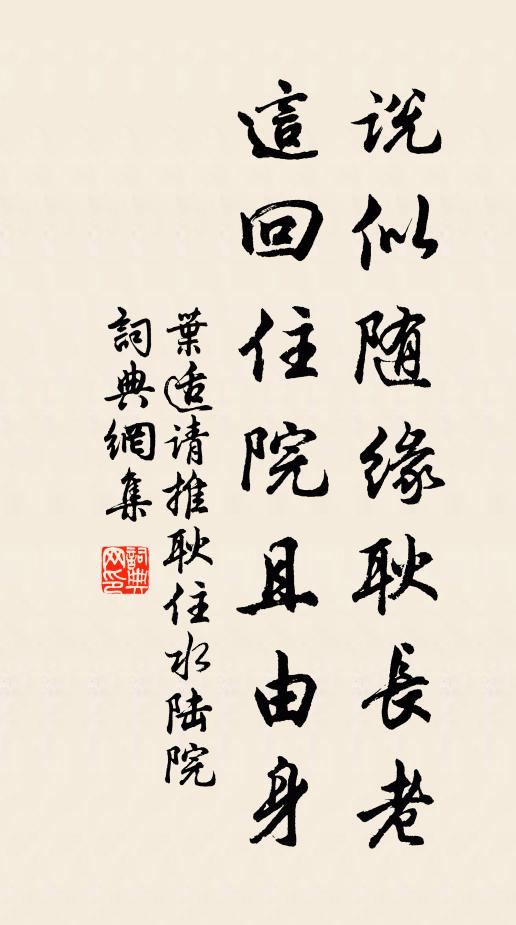 说似随缘耿長老
這回住院且由身
葉適请推耿住水陆院
詞典網集
詞典网印